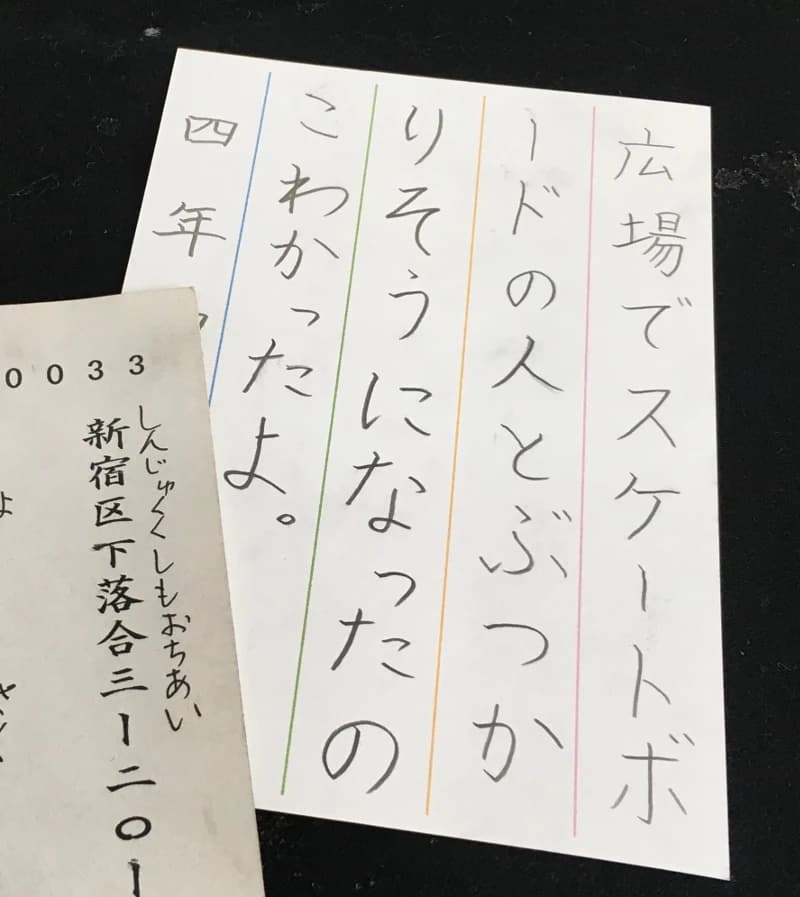 広場でスケートボ
ードの人とぶつか
りそうになったの
こわかったよ。
四年
0033
しんじゅくくしもおちあい
新宿区下落合三ー二〇ー
よ